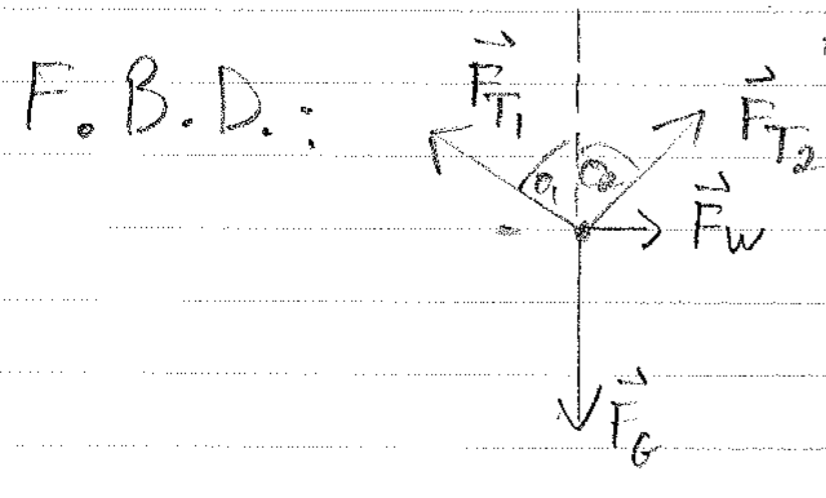 F.B.D.:
F⃗_T₁
F⃗_T₂
θ₁
θ₂
F⃗_W
F⃗_G